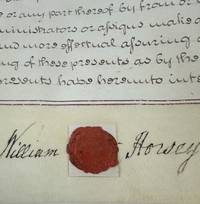 or any part thereof by from or
ministrators or assigns make
and more effectual assuring
ng of these presents as by the
presents have hereunto inte
William Horsey